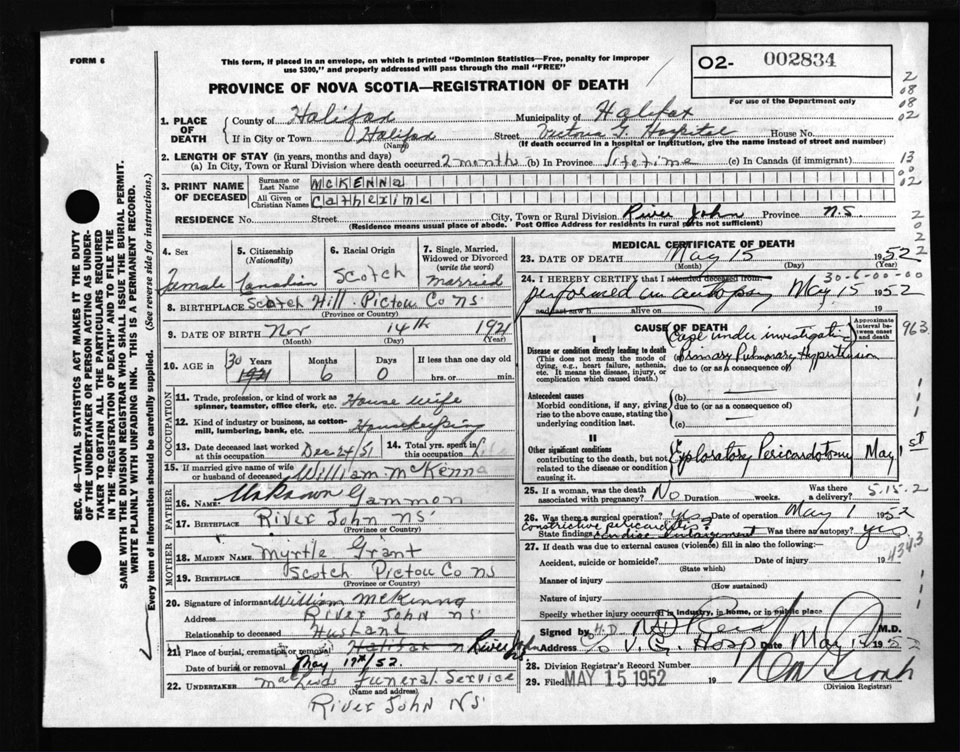 FORM 6
This form, if placed in an envelope, on which is printed "Dominion Statistics—Free, penalty for improper
use $300," and properly addressed will pass through the mail "FREE"
O2- 002834
For use of the Department only
PROVINCE OF NOVA SCOTIA—REGISTRATION OF DEATH
1. PLACE OF DEATH { County of Halifax Municipality of Halifax
If in City or Town Halifax (Name) Street Victoria G. Hospital House No.
(If death occurred in a hospital or institution, give the name instead of street and number)
2. LENGTH OF STAY (in years, months and days)
(a) In City, Town or Rural Division where death occurred 2 months (b) In Province lifetime (c) In Canada (if immigrant)
3. PRINT NAME OF DECEASED { Surname or Last Name McKENNA
All Given or Christian Names Catherine
RESIDENCE No. Street City, Town or Rural Division River John Province N.S.
(Residence means usual place of abode. Post Office Address for residents in rural parts not sufficient)
4. Sex Female
5. Citizenship (Nationality) Canadian
6. Racial Origin Scotch
7. Single, Married, Widowed or Divorced (write the word) married
8. BIRTHPLACE Scotch Hill Pictou Co NS
(Province or Country)
9. DATE OF BIRTH Nov 14th 1921
(Month) (Day) (Year)
10. AGE in { 30 Years 1921 Months 6 Days 0 If less than one day old hrs. or min.
OCCUPATION
11. Trade, profession, or kind of work as spinner, teamster, office clerk, etc. House Wife
12. Kind of industry or business, as cotton-mill, lumbering, bank, etc. Housekeeping
13. Date deceased last worked at this occupation Dec 24/51 14. Total yrs. spent in this occupation
15. If married give name of wife or husband of deceased William McKenna
FATHER
16. Name Unknown Gammon
17. BIRTHPLACE River John NS
(Province or Country)
MOTHER
18. MAIDEN NAME Myrtle Grant
19. BIRTHPLACE Scotch Pictou Co NS
(Province or Country)
20. Signature of informant William McKenna
Address River John NS
Relationship to deceased Husband
21. Place of burial, cremation or removal Halifax River John
Date of burial or removal May 17th/52.
22. UNDERTAKER Funeral Service
(Name and address)
River John NS
MEDICAL CERTIFICATE OF DEATH
23. DATE OF DEATH May 15 1952
(Month) (Day) (Year)
24. I HEREBY CERTIFY that I attended deceased from 30-6-00-00
performed an autopsy May 15 1952
and last saw h alive on
CAUSE OF DEATH
Approximate interval between onset and death
I
Disease or condition directly leading to death
(This does not mean the mode of dying, e.g., heart failure, asthenia, etc. It means the disease, injury, or complication which caused death.
Case under investigation
(a) Primary Pulmonary Hypertension
due to (or as a consequence of)
Antecedent causes
Morbid conditions, if any, giving rise to the above cause, stating the underlying condition last.
(b)
due to (or as a consequence of)
(c)
II
Other significant conditions contributing to the death, but not related to the disease or condition causing it.
Exploratory Pericardotomy May 1st
25. If a woman, was the death associated with pregnancy? No Duration weeks. Was there a delivery? 5.15.2
26. Was there a surgical operation? yes Date of operation May 1 1952
Constrictive pericarditis?
State findings cardiac enlargement Was there an autopsy? yes.
27. If death was due to external causes (violence) fill in also the following:—
Accident, suicide or homicide? (State which) Date of injury 19 434.3
Manner of injury
(How sustained)
Nature of injury
Specify whether injury occurred in industry, in home, or in public place
Signed by M.D.
Address c/o V.G. Hosp Date May 15 1952
28. Division Registrar's Record Number
29. Filed MAY 15 1952 19
(Division Registrar)
SEC. 46—VITAL STATISTICS ACT MAKES IT THE DUTY
OF THE UNDERTAKER OR PERSON ACTING AS UNDER-
TAKER TO OBTAIN ALL THE PARTICULARS REQUIRED
IN THE "REGISTRATION OF DEATH" AND TO FILE THE
SAME WITH THE DIVISION REGISTRAR WHO SHALL ISSUE THE BURIAL PERMIT.
WRITE PLAINLY WITH UNFADING INK. THIS IS A PERMANENT RECORD.
Every item of Information should be carefully supplied. (See reverse side for instructions.)
2
08
08
02
13
00
02
2
0
2
2
963